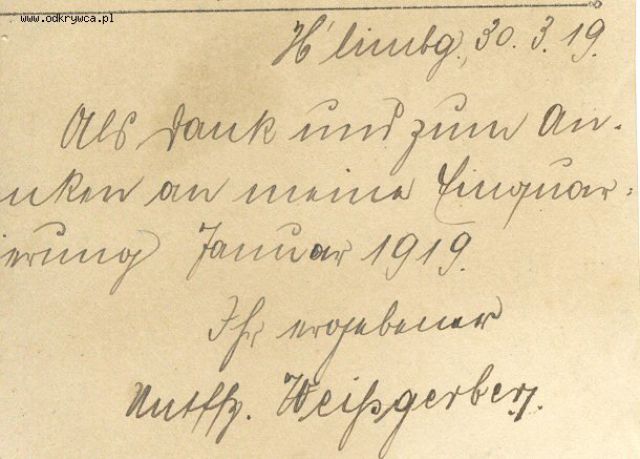 www.odkrywca.pl
H'limbg., 30. 3. 19.
Als Dank und zum An-
nken an meine Einquar-
ierung Januar 1919.
Ihr ergebener
Weißgerber.